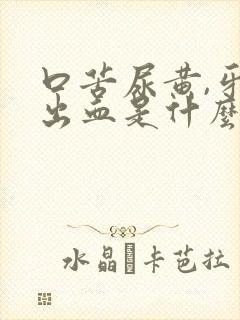 口苦尿黄,牙
出血是什麼
水晶 卡芭拉